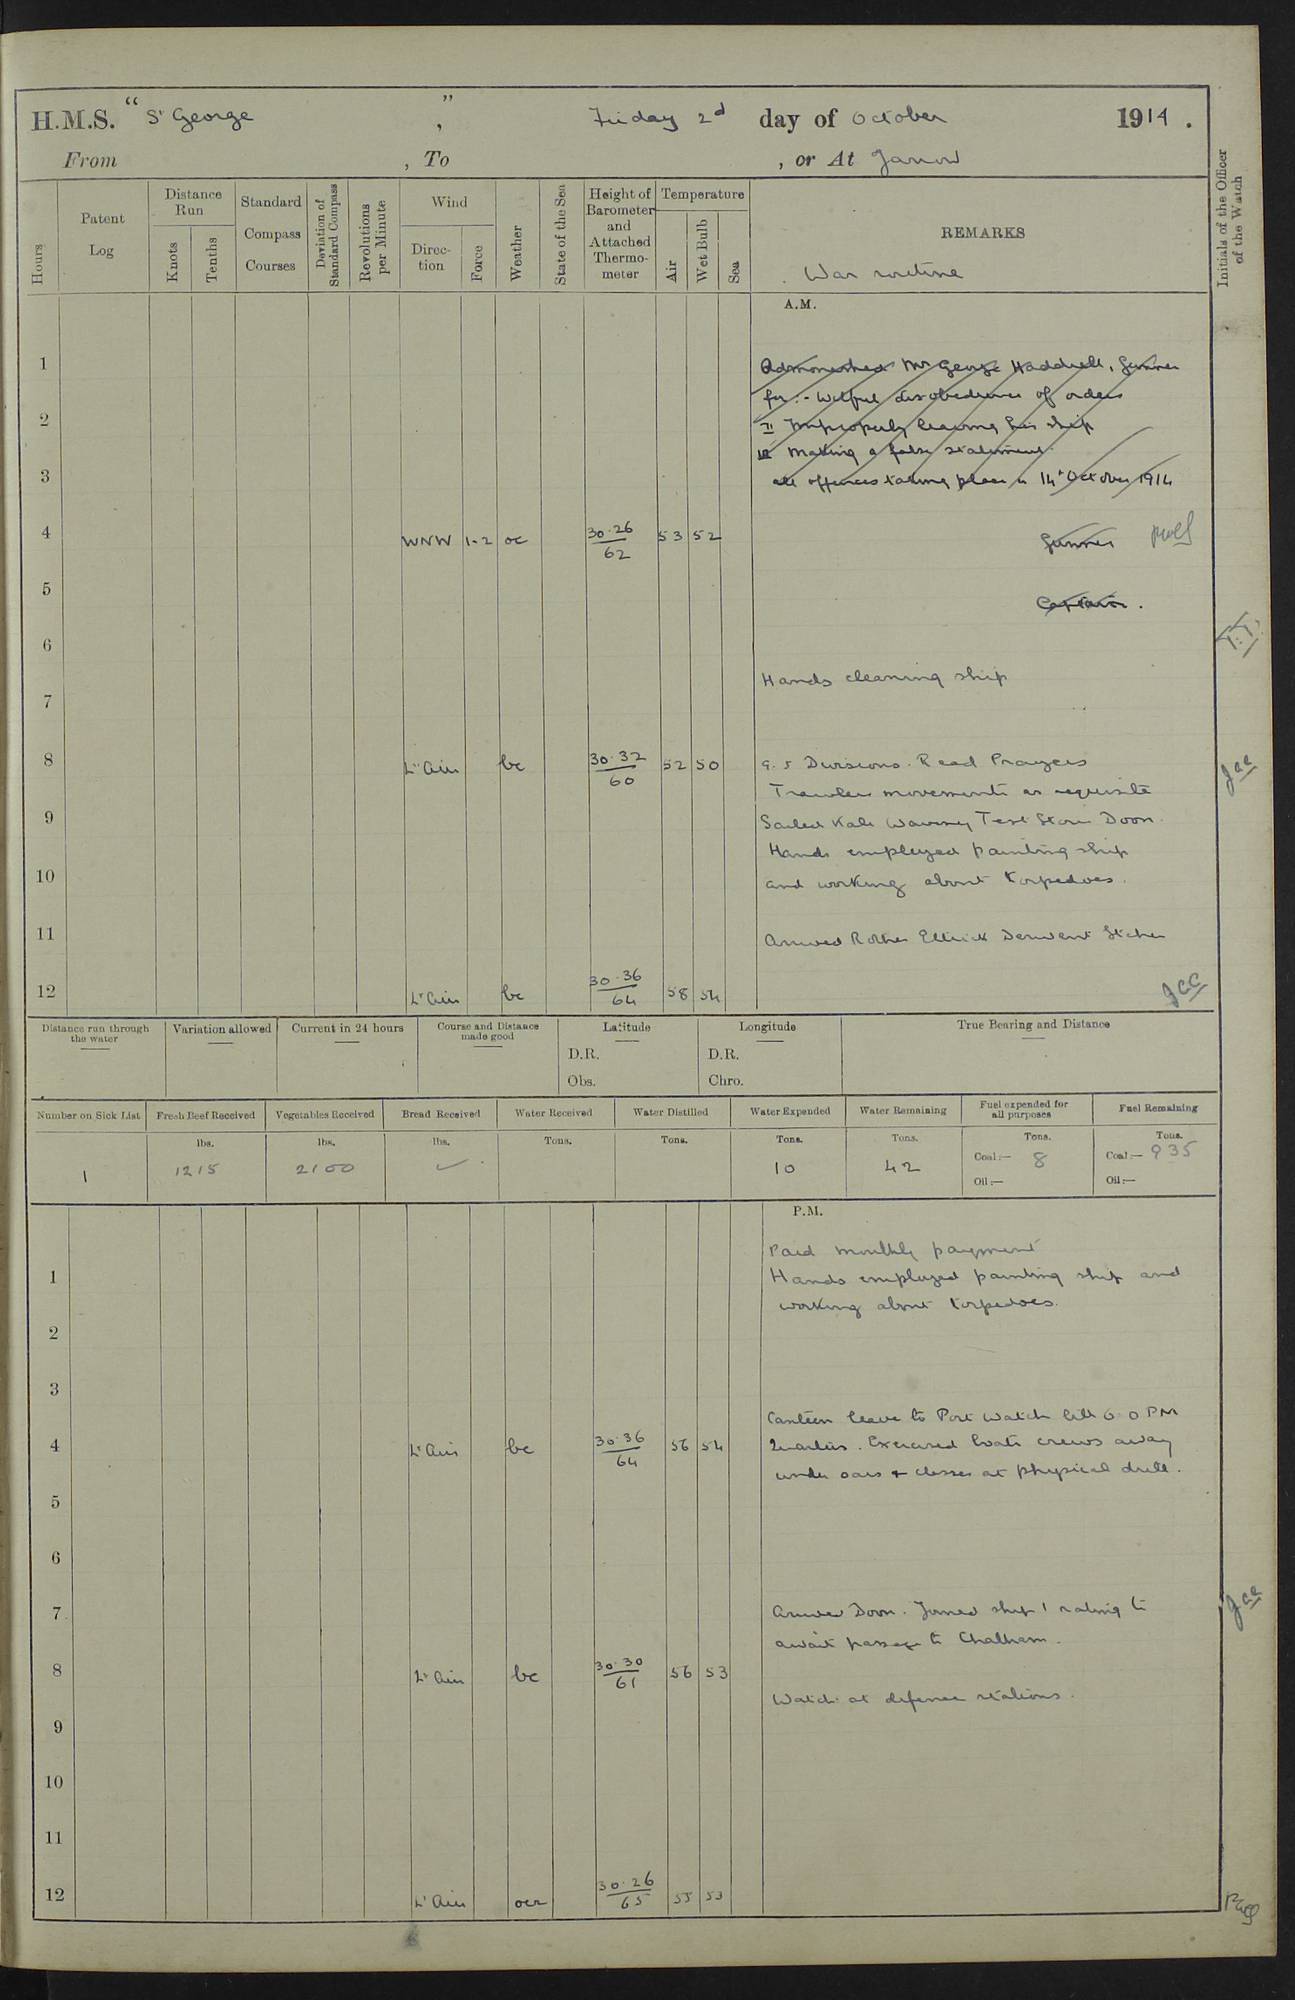 H.M.S. "St George", Friday 2d day of October 1914.
From , To , or At Jarrow
Hours
Patent Log
Distance Run
Knots
Tenths
Standard Compass Courses
Deviation of Standard Compass
Revolutions per Minute
Wind
Direction
Force
Weather
State of the Sea
Height of Barometer and Attached Thermometer
Temperature
Air
Wet Bulb
Sea
REMARKS
War routine
Initials of the Officer of the Watch
A.M.
1 Admonished Mr George Haddrell, Gunner
for :- Wilful disobedience of orders
2 II Improperly leaving his ship
III Making a false statement.
3 all offences taking place on 14th October 1914
4 WNW 1-2 oc 30.26/62 53 52 Gunner
5 Captain.
6
Hands cleaning ship
7
8 Lt Airs bc 30.32/60 52 50 9.5 Divisions. Read Prayers
Trawlers movements as requisite
9 Sailed Kale Waveney Test Stour Doon.
Hands employed painting ship
10 and working about torpedoes.
11 Arrived Rother Ettrick Derwent Itchen
12 Lt Airs bc 30.36/64 58 54
Distance run through the water
Variation allowed
Current in 24 hours
Course and Distance made good
Latitude
D.R.
Obs.
Longitude
D.R.
Chro.
True Bearing and Distance
Number on Sick List 1
Fresh Beef Received lbs. 1215
Vegetables Received lbs. 2100
Bread Received lbs. ✓
Water Received Tons.
Water Distilled Tons.
Water Expended Tons. 10
Water Remaining Tons. 42
Fuel expended for all purposes Tons. Coal:— 8 Oil:—
Fuel Remaining Tons. Coal:— 935 Oil:—
P.M.
Paid monthly payment
1 Hands employed painting ship and
working about torpedoes.
2
3
Canteen leave to Port Watch till 6.0 PM
4 Lt Airs bc 30.36/64 56 54 Quarters. Exercised boats crews away
under oars + classes at physical drill.
5
6
7 Arrived Doon. Joined ship 1 rating to
await passage to Chatham.
8 Lt Airs bc 30.30/61 56 53
Watch at defence stations.
9
10
11
12 Lt Airs ocr 30.26/65 55 53